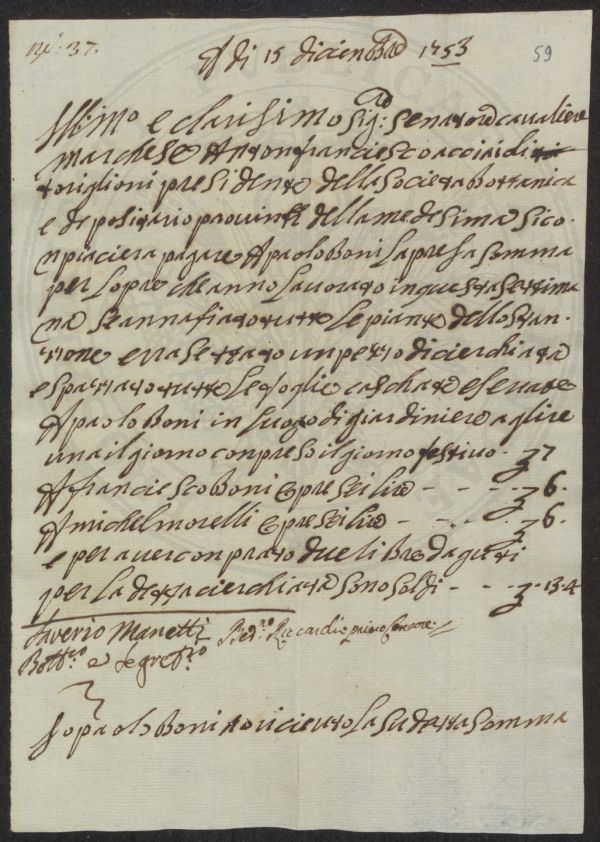 N.º: 37.
A di 15 dicienbre 1753
59
Ill:mo e clarisimo Sig:re Senatore cavaliere
marchese Antonfranciesco acciaidi
toriglioni presidente della Societa Bottanica
e depositario della medesima Si co-
npiaciera pagare A paolo Boni la presa Somma
per lopre che anno lavorato in questa settima
na Se annafiato tutte le piante dello stan-
zone e rasettato un pezzo di cierchiata
e spazzato tutte le foglie caschate e
A paolo Boni in luogo di giardiniere a lire
una il giorno conpreso il giorno festivo - 7
A franciesco Boni opre sei lire - - - 6.
A michel morelli opre sei lire - - - 6.
e per aver conprato due libre daguti
per la detta cierchiata sono soldi - - - 13.4
Saverio Manetti
Bott:co e Segret:rio
Ber:do Riccardi primo Censore
Io paolo Boni o ricieuto la sudetta somma